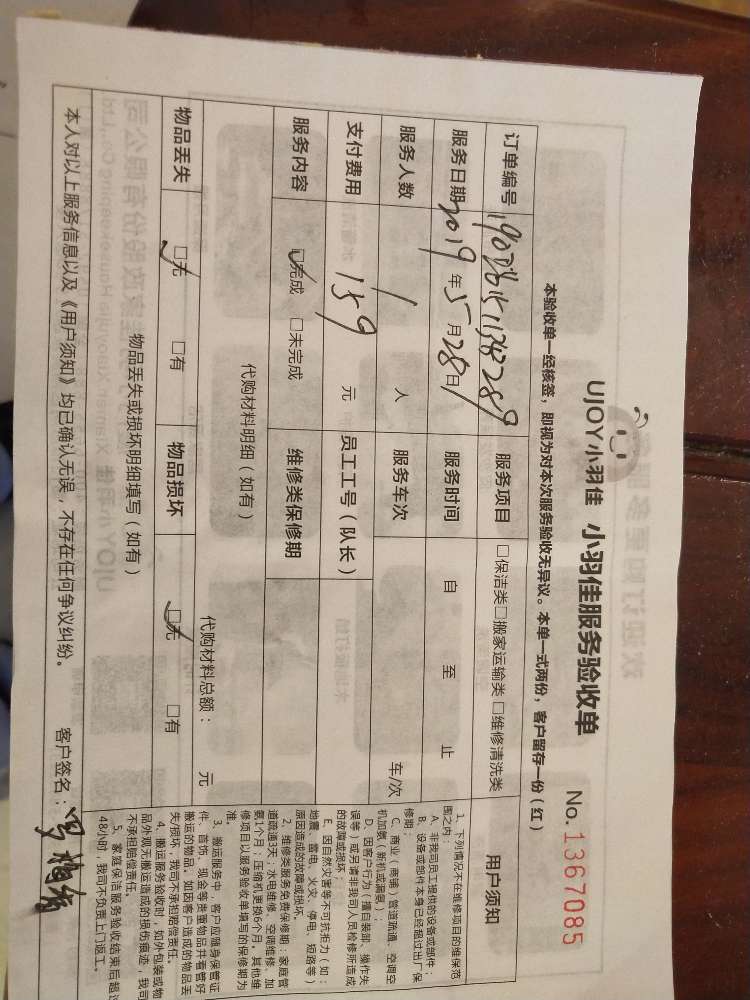 UJOY小羽佳 小羽佳服务验收单 No. 1367085
本验收单一经核签,即视为对本次服务验收无异议。本单一式两份,客户留存一份(红)
订单编号 服务项目 □保洁类□搬家运输类□维修清洗类
服务日期 2019年5月28日 服务时间 自 至 止
服务人数 1 人 服务车次 车/次
支付费用 159 元 员工工号(队长)
服务内容 □完成 □未完成 维修类保修期
代购材料明细(如有)
代购材料总额: 元
物品丢失 □无 □有 物品损坏 □无 □有
物品丢失或损坏明细填写(如有)
本人对以上服务信息以及《用户须知》均已确认无误,不存在任何争议纠纷。 客户签名:
用户须知
1、下列情况不在维修项目的维保范
围之内:
A、非我司员工提供的设备或部件;
B、设备或部件本身已经超过出厂保
修期;
C、商业(商铺)管道疏通、空调空
机加氨(新机或漏氨。);
D、因客户行为(擅自装卸、操作失
误等)或另请非我司人员检修所造成
的故障或损坏;
E、因自然灾害等不可抗拒力(如:
地震、雷电、火灾、停电、短路等)
原因造成的故障或损坏.
2、维修类服务免费保修期:家庭管
道疏通3天;水电维修、空调维修、加
氨1个月;压缩机更换6个月。其他维
修项目以服务验收单填写的保修期为
准。
3、搬运服务中,客户应随身保管证
件、首饰、现金等贵重物品并看管好
搬运的物品。如因客户造成的物品丢
失/损坏,我司不承担赔偿责任。
4、搬运服务验收时,如外包装或物
品外观无搬运造成的损伤痕迹,我司
不承担赔偿责任。
5、家庭保洁服务验收结束后超过
48小时,我司不负责上门返工。